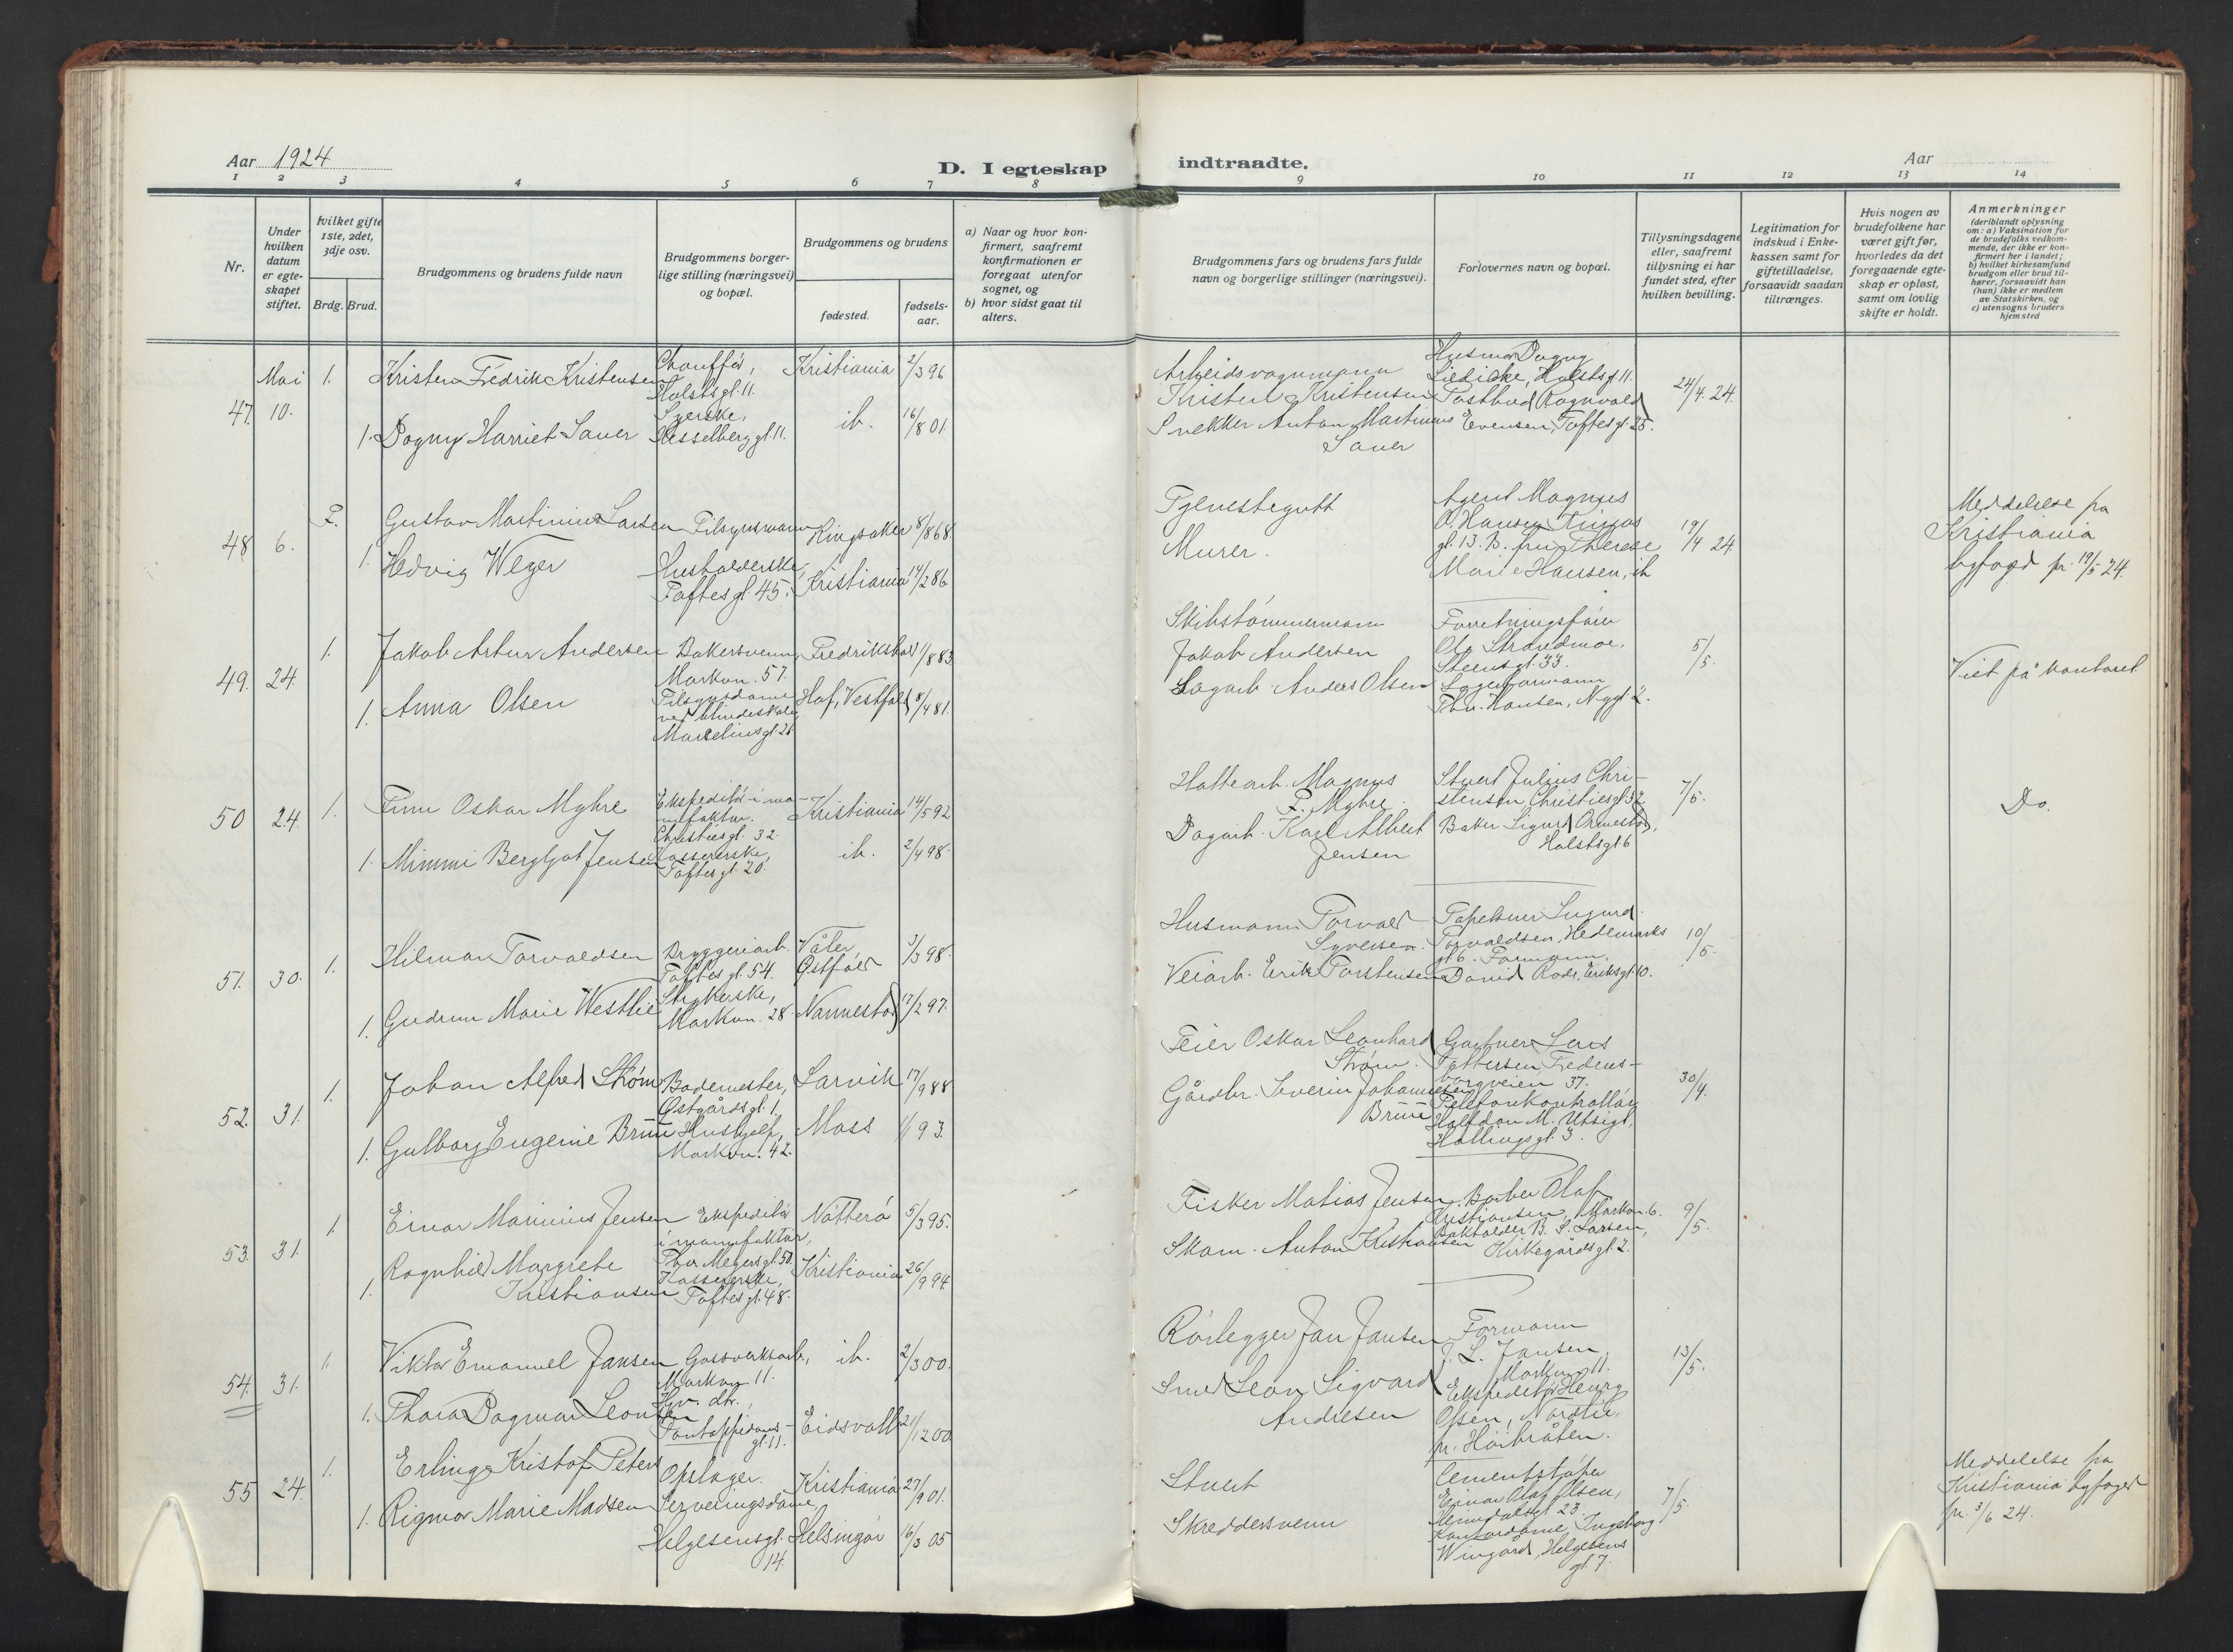 Aar 1924
D. I egteskap indtraadte.
Aar
1 2 3 4 5 6 7 8 9 10 11 12 13 14
Nr.
Under hvilken datum er egteskapet stiftet.
hvilket gifte 1ste, 2det, 3dje osv.
Brdg. Brud.
Brudgommens og brudens fulde navn
Brudgommens borgerlige stilling (næringsvei) og bopæl.
Brudgommens og brudens
fødested.
fødselsaar.
a) Naar og hvor konfirmert, saafremt konfirmationen er foregaat utenfor sognet, og
b) hvor sidst gaat til alters.
Brudgommens fars og brudens fars fulde navn og borgerlige stillinger (næringsvei).
Forlovernes navn og bopæl.
Tillysningsdagene eller, saafremt tillysning ei har fundet sted, efter hvilken bevilling.
Legitimation for indskud i Enkekassen samt for giftetilladelse, forsaavidt saadan tiltrænges.
Hvis nogen av brudefolkene har været gift før, hvorledes da det foregaaende egteskap er opløst, samt om lovlig skifte er holdt.
Anmerkninger
(deriblandt oplysning om: a) Vaksination for de brudefolks vedkommende, der ikke er konfirmert her i landet; b) hvilket kirkesamfund brudgom eller brud tilhører, forsaavidt han (hun) ikke er medlem av Statskirken, og c) utensogns bruders hjemsted
47. Mai 10.
1. Kristen Fredrik Kristensen
Chauffør, Holstsgt. 11.
Kristiania 2/3 96
1. Dagny Harriet Sauer
Syerske, Hesselberggt. 11.
ib. 16/8 01.
Arbeidsvognmann
Kristen Kristensen
Snekker Anton Martinius
Sauer
Husmor Dagny
Holstsgt. 11.
Postbud Ragnvald
Evensen, Toftesgt. 25.
24/4. 24.
48 6.
F. Gustav Martinius Larsen
Tilsynsmann
Ringsaker 8/8 68.
1. Hedvig Weger
Husholderske, Toftesgt. 45.
Kristiania 14/2 86
Tjenestegutt
Murer.
Agent Magnus
O. Hansen
gt. 13. B. fru Therese
Marie Hansen, ib
19/4 24.
Meddelelse fra
Kristiania
byfogd pr. 19/5 24.
49. 24
1. Jakob Artur Andersen
Bakersvenn, Markvn. 57.
Fredrikshald 1/8 83
1. Anna Olsen
Tilsynsdame
ved blindeskolen
Marselius gt 28
Hof, Vestfold 8/4 81.
Skibstømmermann
Jakob Andersen
Dagarb. Anders Olsen
Forretningsfører
Ole Strandmoe,
Steensgt. 33.
Lagerformann
Thv. Hansen, Nygt 2.
5/5.
Viet på kontoret
50 24.
1. Finn Oskar Myhre
Ekspeditør i manufaktur.
Christiesgt. 32.
Kristiania 14/5 92
1. Mimmi Bergljot Jensen
Kassererske,
Toftesgt. 20.
ib. 2/4 98.
Hattearb. Magnus
F. Myhre.
Dagarb. Karl Albert
Jensen
Stuert Julius Christensen, Christiesgt 32
Baker Sigurd Ormestad,
Holstsgt 6
7/5.
Do.
51. 30.
1. Hilmar Torvaldsen
Bryggeriarb.
Toftes gt. 54.
Våler, Østfold
3/3 98.
1. Gudrun Marie Westlie
Strykerske,
Markvn. 28.
Nannestad 17/2 97.
Husmann Torvald
Syversen.
Veiarb. Erik Torstensen
Tapetserer Sigurd
Torvaldsen, Hedemarks
gt. 6. Formann
David Rode, Eriksgt. 10.
10/5.
52. 31.
1. Johan Alfred Strøm
Bademester,
Østgårdsgt. 1,
Larvik 17/9 88
1. Gulborg Eugenie Bruu
Hushjelp,
Markvn. 42.
Moss 1/1 93.
Feier Oskar Leonhard
Strøm.
Gårdbr. Severin Johannesen
Bruu
Gartner Lars
Pettersen, Fredensborgveien 37.
Telefonkontrollør
Halfdan M. Utsigt,
Hallingsgt. 3.
30/4.
53. 31.
1. Einar Marinius Jensen
Ekspeditør
i manufaktur,
Thor Meyersgt. 50.
Nøtterø 5/3 95.
1. Ragnhild Margrete
Kristiansen
Kassererske,
Toftesgt. 48.
Kristiania 26/9 94
Fisker Matias Jensen
Skom. Anton Kristiansen
Barber Olaf
Kristiansen, Markvn. 6.
Bokholder B. S. Larsen,
Kirkegårdsgt. 2.
9/5.
54. 31.
1. Viktor Emanuel Jansen
Gassverksarb,
Markvn 11.
ib. 2/3 00.
1. Thora Dagmar Leonsen
Hjv. dtr.,
gt. 11.
Eidsvoll 21/12 00
Rørlegger Jan Jansen
Smed Leon Sigvard
Andresen
Formann
J. L. Jansen,
Markvn 11.
Ekspeditør Henry
Olsen, Nordlie,
pr. Høibråten.
13/5.
55 24.
1. Erling Kristof Peters
Opslager.
Kristiania 27/9 01.
1. Rigmor Marie Madsen
Serveringsdame,
Helgesensgt. 14.
Helsingør 16/3 05
Stuert
Skreddersvenn
Cementstøper
Einar Olaf Olsen,
Heimdalsgt 23.
Kontordame, Ingeborg
Wingård, Helgesens
gt. 7.
7/5.
Meddelelse fra
Kristiania byfoged
pr. 3/6 24.